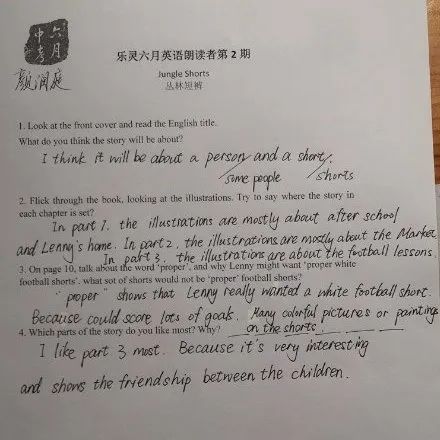 六月
中考
颜润庭
乐灵六月英语朗读者第 2 期
Jungle Shorts
丛林短裤
1. Look at the front cover and read the English title.
What do you think the story will be about?
I think it will be about a person and a short.
some people shorts
2. Flick through the book, looking at the illustrations. Try to say where the story in
each chapter is set?
In part 1. the illustrations are mostly about after school
and Lenny's home. In part 2, the illustrations are mostly about the Market
In part 3. the illustrations are about the football lessons.
3. On page 10, talk about the word 'proper', and why Lenny might want 'proper white
football shorts'. what sot of shorts would not be 'proper' football shorts?
"proper" shows that Lenny really wanted a white football short.
Because could score lots of goals. Many colorful pictures or paintings
4. Which parts of the story do you like most? Why? on the shorts.
I like part 3 most. Because it's very interesting
and shows the friendship between the children.